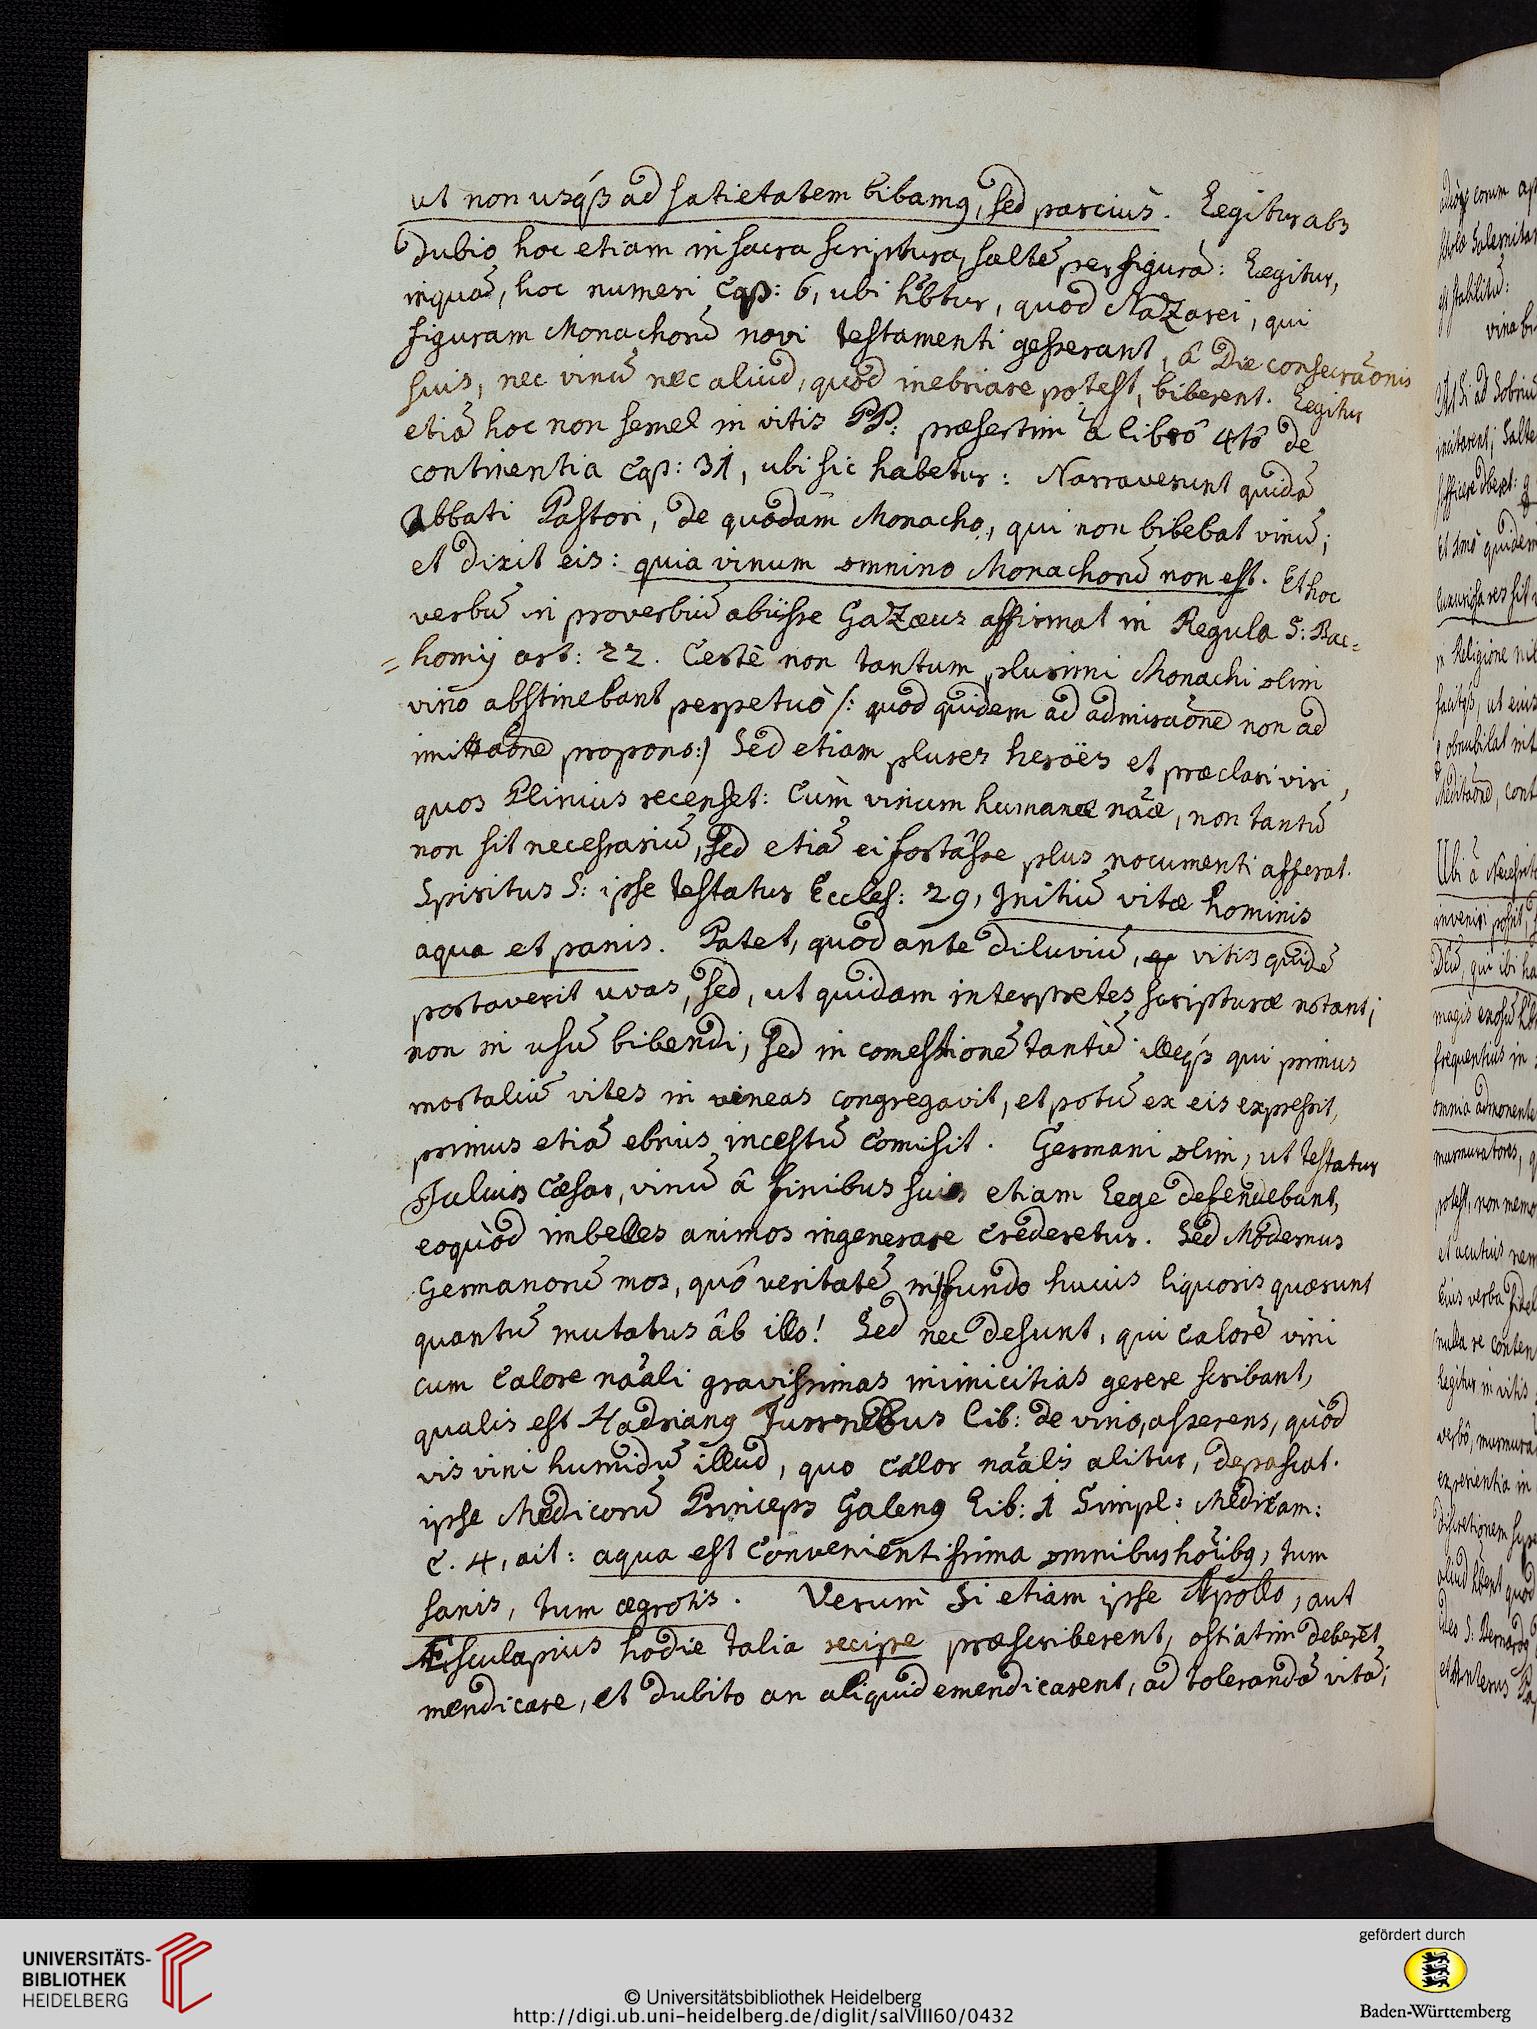 ut non usq́ꝫ ad satietatem bibamꝰ, sed parciùs. Legitur abs
dubio hoc etiam in sacra scriptura, saltē per figurā: Legitur,
inquā, hoc numeri Cap: 6, ubi hb̄tur, quod Nazarei, qui
figuram Monachorū novi testamenti gesserant, â Die consecrāonis
suis, nec vinū nec aliud, quòd inebriare potest, biberent. Legitur
etiā hoc non semel in vitis PP: præsertim à librô 4tô de
continentia Cap: 31, ubi sic habetur: Narraverunt quidā
Abbati Pastori, de quodam Monacho, qui non bibebat vinū;
et dixit eis: quia vinum omnino Monachorū non est. Et hoc
verbū in proverbiū abiisse Gazæus affirmat in Regula S: Pac=
=homij art: 22. Certè non tantum plurimi Monachi olim
vino abstinebant perpetuò /: quod quidem ad admirāone non ad
imitāone propono:/ Sed etiam plures heroës et præclari viri,
quos Plinius recenset: Cùm vinum humanæ nāæ, non tantū
non sit necessariū, sed etiā ei fortàsse plus nocumenti afferat.
Spiritus S: ipse testatur Eccles: 29, Initiū vitæ hominis
aqua et panis. Patet, quòd ante diluviū, vitis quidē
portaverit uvas, sed, ut quidam interpretes scripturæ notant;
non in usū bibendi, sed in comestionē tantū. illeq́ꝫ qui primus
mortaliū vites in vineas congregavit, et potū ex eis expressit,
primus etiā ebrius incestū comisit. Germani olim, ut testatur
Julius Cæsar, vinū â finibus suis etiam lege defendebant,
eoquòd imbelles animos ingenerare crederetur. Sed Modernus
Germanorū mos, quô veritatē in fundo huius liquoris quærunt
quantū mutatus âb illo! Sed nec desunt, qui calorē vini
cum calore nāali gravissimas inimicitias gerere scribant,
qualis est Hadrianꝰ Turnebus lib: de vino, asserens, quòd
vis vini humidū illud, quo calor nāalis alitur, depascat.
ipse Medicorū Princeps Galenꝰ Lib: 1 Simpl: Medicam:
c. 4, ait: aqua est convenientissima omnibus hōibꝰ, tum
sanis, tum ægrotis. Verùm si etiam ipse Apollo, aut
Æsculapius hodie talia recipe præscriberent, ostiatim deberēt
mendicare, et dubito an aliquid emendicarent, ad tolerandā vitā;
UNIVERSITÄTS-
BIBLIOTHEK
HEIDELBERG
© Universitätsbibliothek Heidelberg
http://digi.ub.uni-heidelberg.de/diglit/salVIII60/0432
gefördert durch
Baden-Württemberg